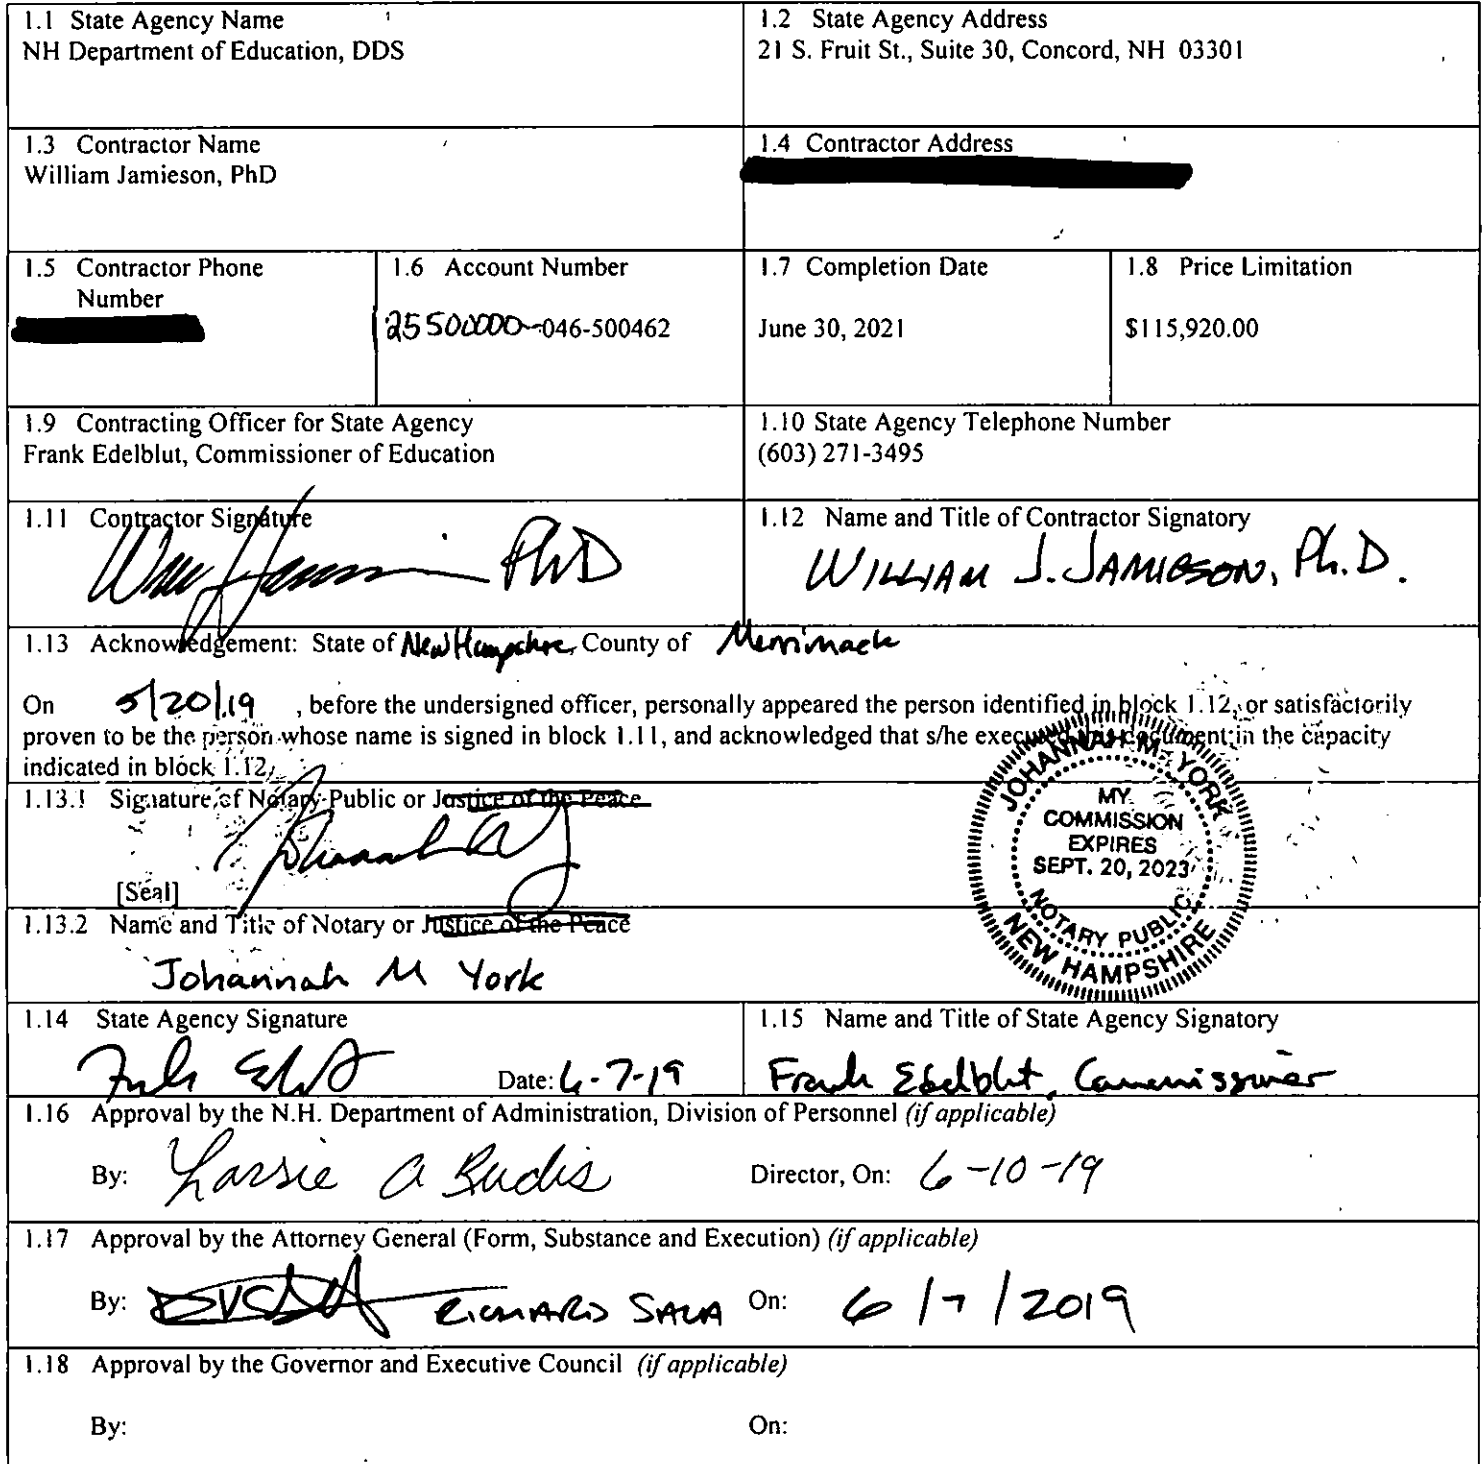 1.1 State Agency Name
NH Department of Education, DDS
1.2 State Agency Address
21 S. Fruit St., Suite 30, Concord, NH 03301
1.3 Contractor Name
William Jamieson, PhD
1.4 Contractor Address
1.5 Contractor Phone
Number
1.6 Account Number
25500000-046-500462
1.7 Completion Date
June 30, 2021
1.8 Price Limitation
$115,920.00
1.9 Contracting Officer for State Agency
Frank Edelblut, Commissioner of Education
1.10 State Agency Telephone Number
(603) 271-3495
1.11 Contractor Signature
PhD
1.12 Name and Title of Contractor Signatory
WILLIAM J. JAMIESON, Ph.D.
1.13 Acknowledgement: State of New Hampshire, County of Merrimack
On 5/20/19 , before the undersigned officer, personally appeared the person identified in block 1.12, or satisfactorily
proven to be the person whose name is signed in block 1.11, and acknowledged that s/he executed this document in the capacity
indicated in block 1.12.
1.13.1 Signature of Notary Public or Justice of the Peace
[Seal]
JOHANNAH M. YORK
MY
COMMISSION
EXPIRES
SEPT. 20, 2023
NOTARY PUBLIC
NEW HAMPSHIRE
1.13.2 Name and Title of Notary or Justice of the Peace
Johannah M York
1.14 State Agency Signature
Date: 6-7-19
1.15 Name and Title of State Agency Signatory
Frank Edelblut, Commissioner
1.16 Approval by the N.H. Department of Administration, Division of Personnel (if applicable)
By: Director, On: 6-10-19
1.17 Approval by the Attorney General (Form, Substance and Execution) (if applicable)
By: RICHARD SALA On: 6/7/2019
1.18 Approval by the Governor and Executive Council (if applicable)
By: On: